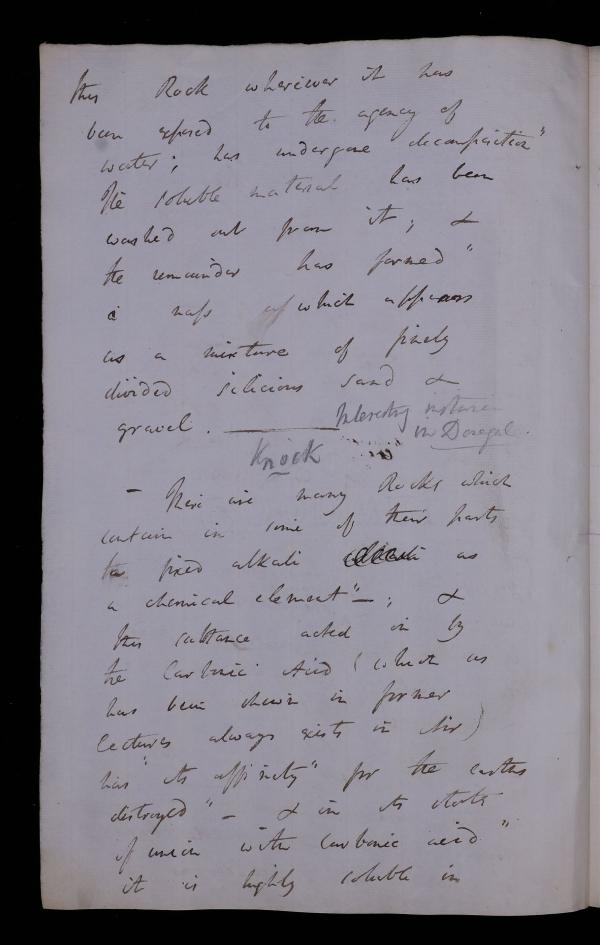 this Rock wherever it has
been exposed to the agency of
water; has undergone decomposition"
The soluble material has been
washed out from it; &
the remainder has formed"
a mass of which appears
as a mixture of finely
divided silicious sand &
gravel. Interesting instance
in Donegal.
Knock
– There are many Rocks which
contain in some of their parts
fixed alkali as
a chemical element" –; &
this substance acted on by
the Carbonic Acid (which as
has been shewn in former
Lectures always exists in Air)
has "its affinity" for the earths
destroyed" – & in its state
of union with Carbonic acid"
it is highly soluble in